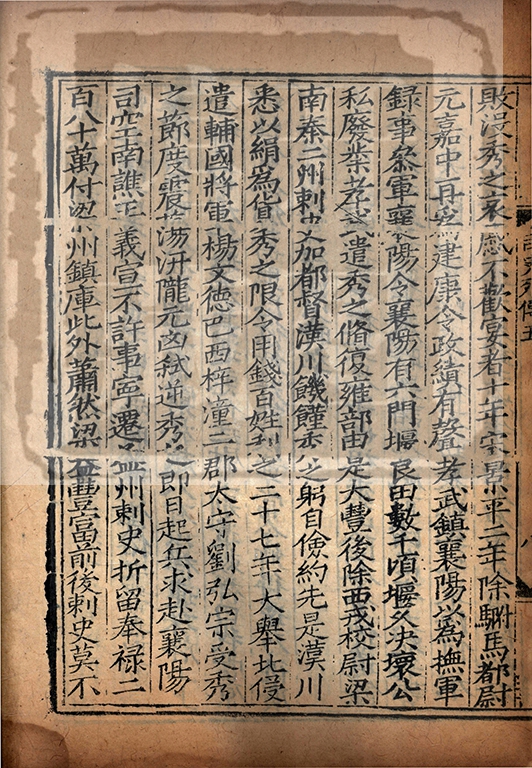 敗没秀之哀感不歡宴者十年宋景平二年除駙馬都尉
元嘉中再為建康令政績有聲孝武鎮襄陽以為撫軍
録事叅軍襄陽令襄陽有六門堰良田數千頃堰久決壞公
私廢業孝武遣秀之脩復雍部由是大豐後除西戎校尉梁
南秦二州刺史加都督漢川饑饉秀之躬自儉約先是漢川
悉以絹為貨秀之限令用錢百姓利之二十七年大舉北侵
遣輔國將軍楊文德巴西梓潼二郡太守劉弘宗受秀
之節度震蕩汧隴元凶弑逆秀之即日起兵求赴襄陽
司空南譙王義宣不許事寧遷益州刺史折留奉禄二
百八十萬付梁州鎮庫此外蕭然梁益豐富前後刺史莫不